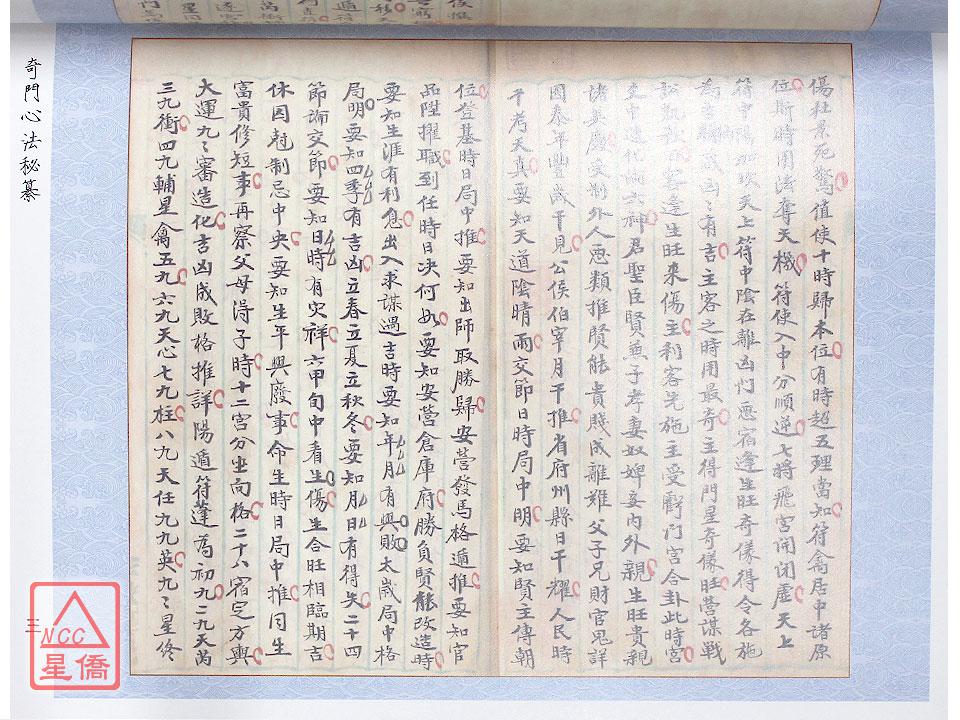 傷杜景死驚值使十時歸本位有時超五理當知符禽居中諸原
位斯時用法奪天機符使入中分順逆七將飛宮開閉虛天上
符中陽加坎天上符中陰在離凶門惡宿逢生旺奇儀得令各施
為吉凶凶凶有吉主客之時用最奇主得門星奇儀旺營謀戰
客逢生旺來傷主利客先施主受虧門宮合卦此時宮
六神君聖臣賢兼子孝妻奴婢妾內外親生旺貴親
諸美慶受制外人惡類推賢能貴賤成離難父子兄財官鬼詳
國泰年豐歲干見公侯伯宰月干推省府州縣日干耀人民時
干考天真要知天道陰晴雨交節日時局中明要知賢主傳朝
位登基時日局中推要知出師取勝歸安營發馬格遁推要知官
品陞擢職到任時日決何如要知安營倉庫府勝負賢能改造時
要知生涯有利息出入求謀遇吉時要知年月有興敗太歲局中格
局明要知四季有吉凶立春立夏立秋冬要知月日有得失二十四
節論交節要知日時有灾祥六甲旬中看生傷生合旺相臨期吉
休囚尅制忌中央要知生年興廢事命生時日局中推同生
富貴修短事再察父母淂子時十二宮分坐向格二十八宿定方輿
大運九〻審造化吉凶成敗格推詳陽遁符蓬為初九二九天芮
三九衝四九輔星禽五九六九天心七九柱八九天任九九英九〻星終
奇門心法秘纂
三
NCC
星僑